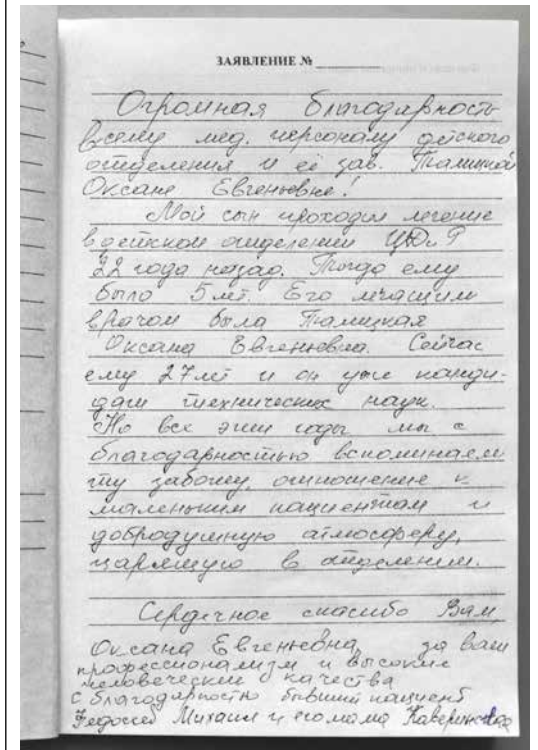 ЗАЯВЛЕНИЕ №
Огромная благодарность
всему мед. персоналу детского
отделения и её зав. Талицкой
Оксане Евгеньевне!
Мой сын проходил лечение
в детском отделении ЦДиР
22 года назад. Тогда ему
было 5 лет. Его лечащим
врачом была Талицкая
Оксана Евгеньевна. Сейчас
ему 27 лет и он уже канди-
дат технических наук.
Но все эти годы мы с
благодарностью вспоминаем
ту заботу, отношение к
маленьким пациентам и
добродушную атмосферу,
царящую в отделении.
Сердечное спасибо Вам,
Оксана Евгеньевна, за ваш
профессионализм и высокие
человеческие качества
с благодарностью бывший пациент
Федосеев Михаил и его мама